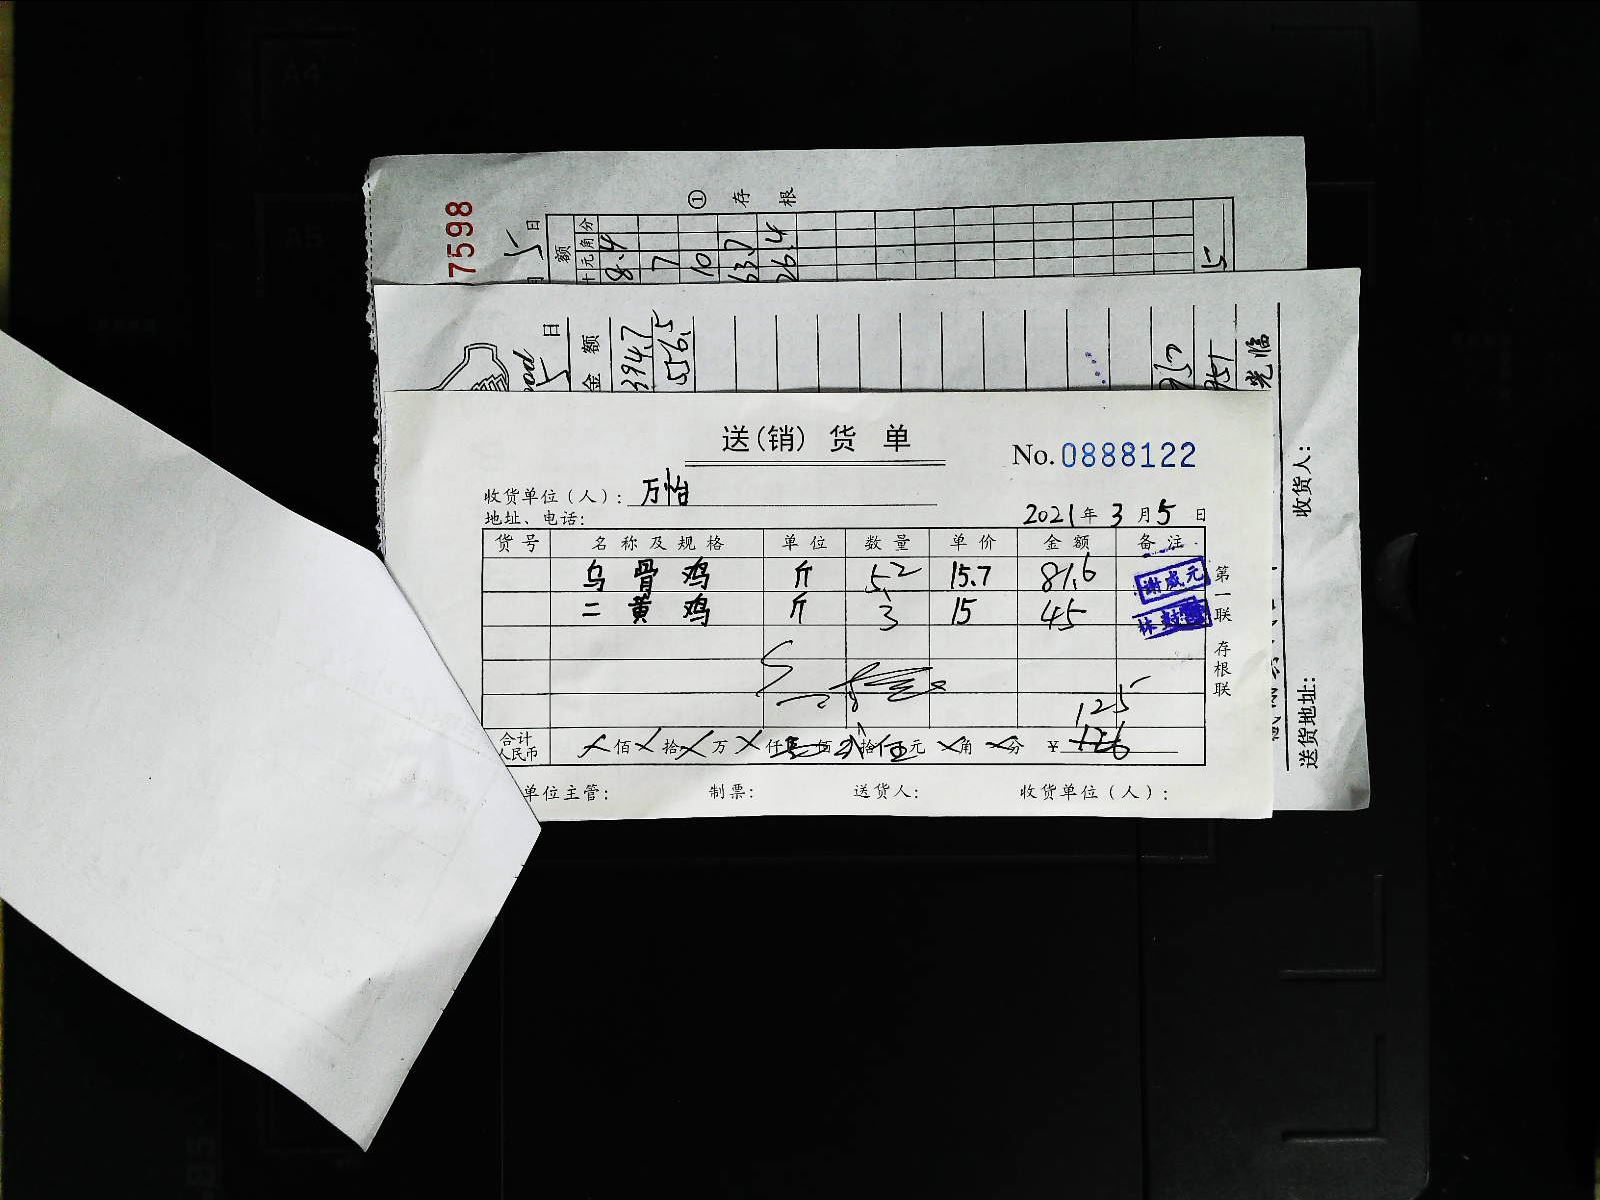 7598
① 存 根
日
5
额
十 元 角 分
8.4
7
10
63.7
26.4
5
日
5
金 额
394.7
556.5
957
951
光临
收货人:
送货地址:
送(销) 货 单
No. 0888122
收货单位(人): 万怡
地址、电话:
2021年 3 月 5 日
货号 名称及规格 单位 数量 单价 金额 备注
乌骨鸡 斤 5.2 15.7 81.6 谢成元
二黄鸡 斤 3 15 45
第一联 存根联
125
合计人民币 佰 拾 万 仟 佰 拾 伍 元 角 分 ¥ 126
单位主管: 制票: 送货人: 收货单位(人):